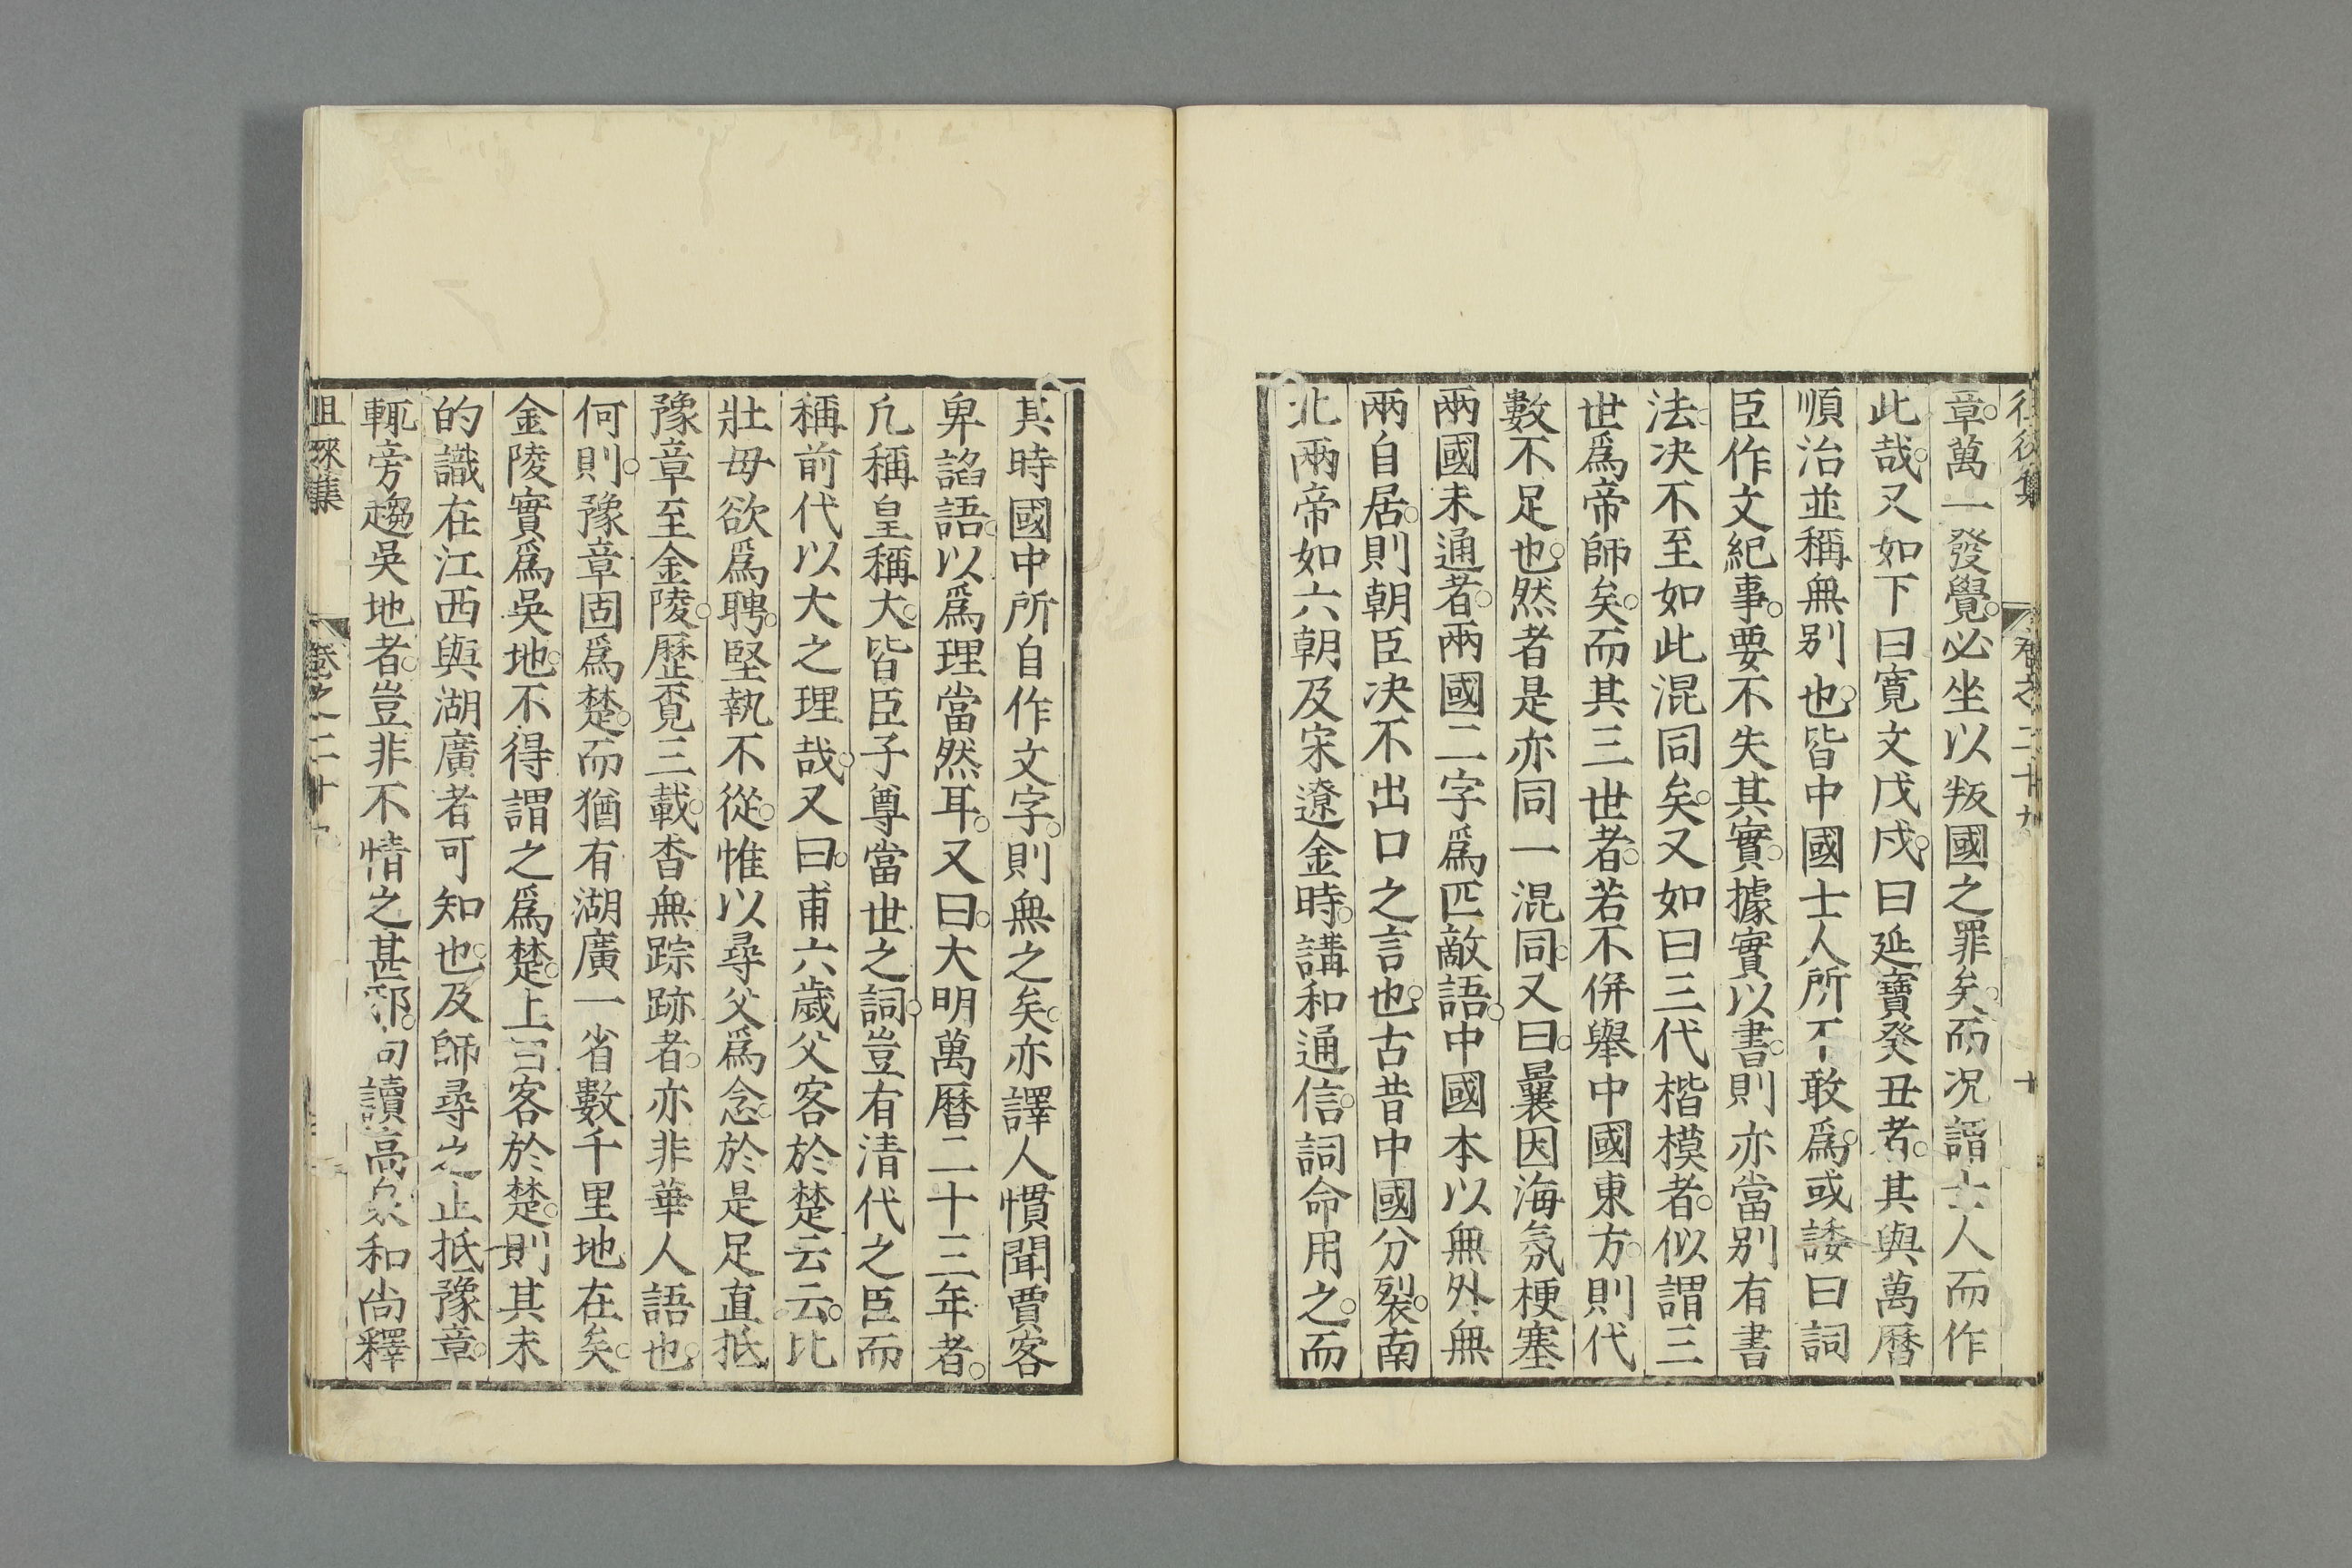 章。萬一發覺。必坐以叛國之罪矣。而况謂士人而作
此哉。又如下曰寛文戊戌。曰延寶癸丑者。其與萬曆
順治並稱無别也。皆中國士人所不敢爲。或諉曰詞
臣作文紀事。要不失其實。據實以書。則亦當别有書
法。决不至如此混同矣。又如曰三代楷模者。似謂三
世爲帝師矣。而其三世者。若不併舉中國東方。則代
數不足也。然者是亦同一混同。又曰。曩因海氛梗塞
兩國未通者。兩國二字爲匹敵語。中國本以無外無
兩自居。則朝臣决不出口之言也。古昔中國分裂。南
北兩帝如六朝及宋遼金時。講和通信。詞命用之。而
其時國中所自作文字。則無之矣。亦譯人慣聞賈客
卑諂語。以爲理當然耳。又曰。大明萬曆二十三年者。
凢稱皇稱大。皆臣子尊當世之詞。豈有清代之臣而
稱前代以大之理哉。又曰。甫六歲父客於楚云云。比
壯母欲爲聘。堅執不從。惟以尋父爲念。於是足直抵
豫章至金陵。歷覔三載。杳無踪跡者。亦非華人語也。
何則。豫章固爲楚。而猶有湖廣一省數千里地在矣。
金陵實爲吳地。不得謂之爲楚。上言客於楚。則其未
的識在江西與湖廣者可知也。及師尋之止抵豫章。
輒旁趨吳地者。豈非不情之甚邪。向讀高泉和尚釋
徂徠集
卷之二十